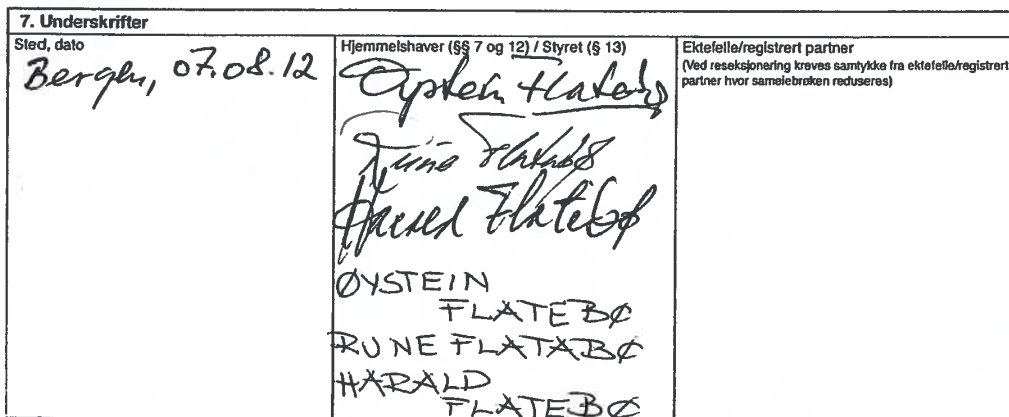 7. Underskrifter
Sted, dato
Bergen, 07.08.12
Hjemmelshaver (§§ 7 og 12) / Styret (§ 13)
Øystein Flatebø
Rune Flatabø
Harald Flatebø
ØYSTEIN
FLATEBØ
RUNE FLATABØ
HARALD
FLATEBØ
Ektefelle/registrert partner
(Ved reseksjonering kreves samtykke fra ektefelle/registrert
partner hvor sameiebrøken reduseres)